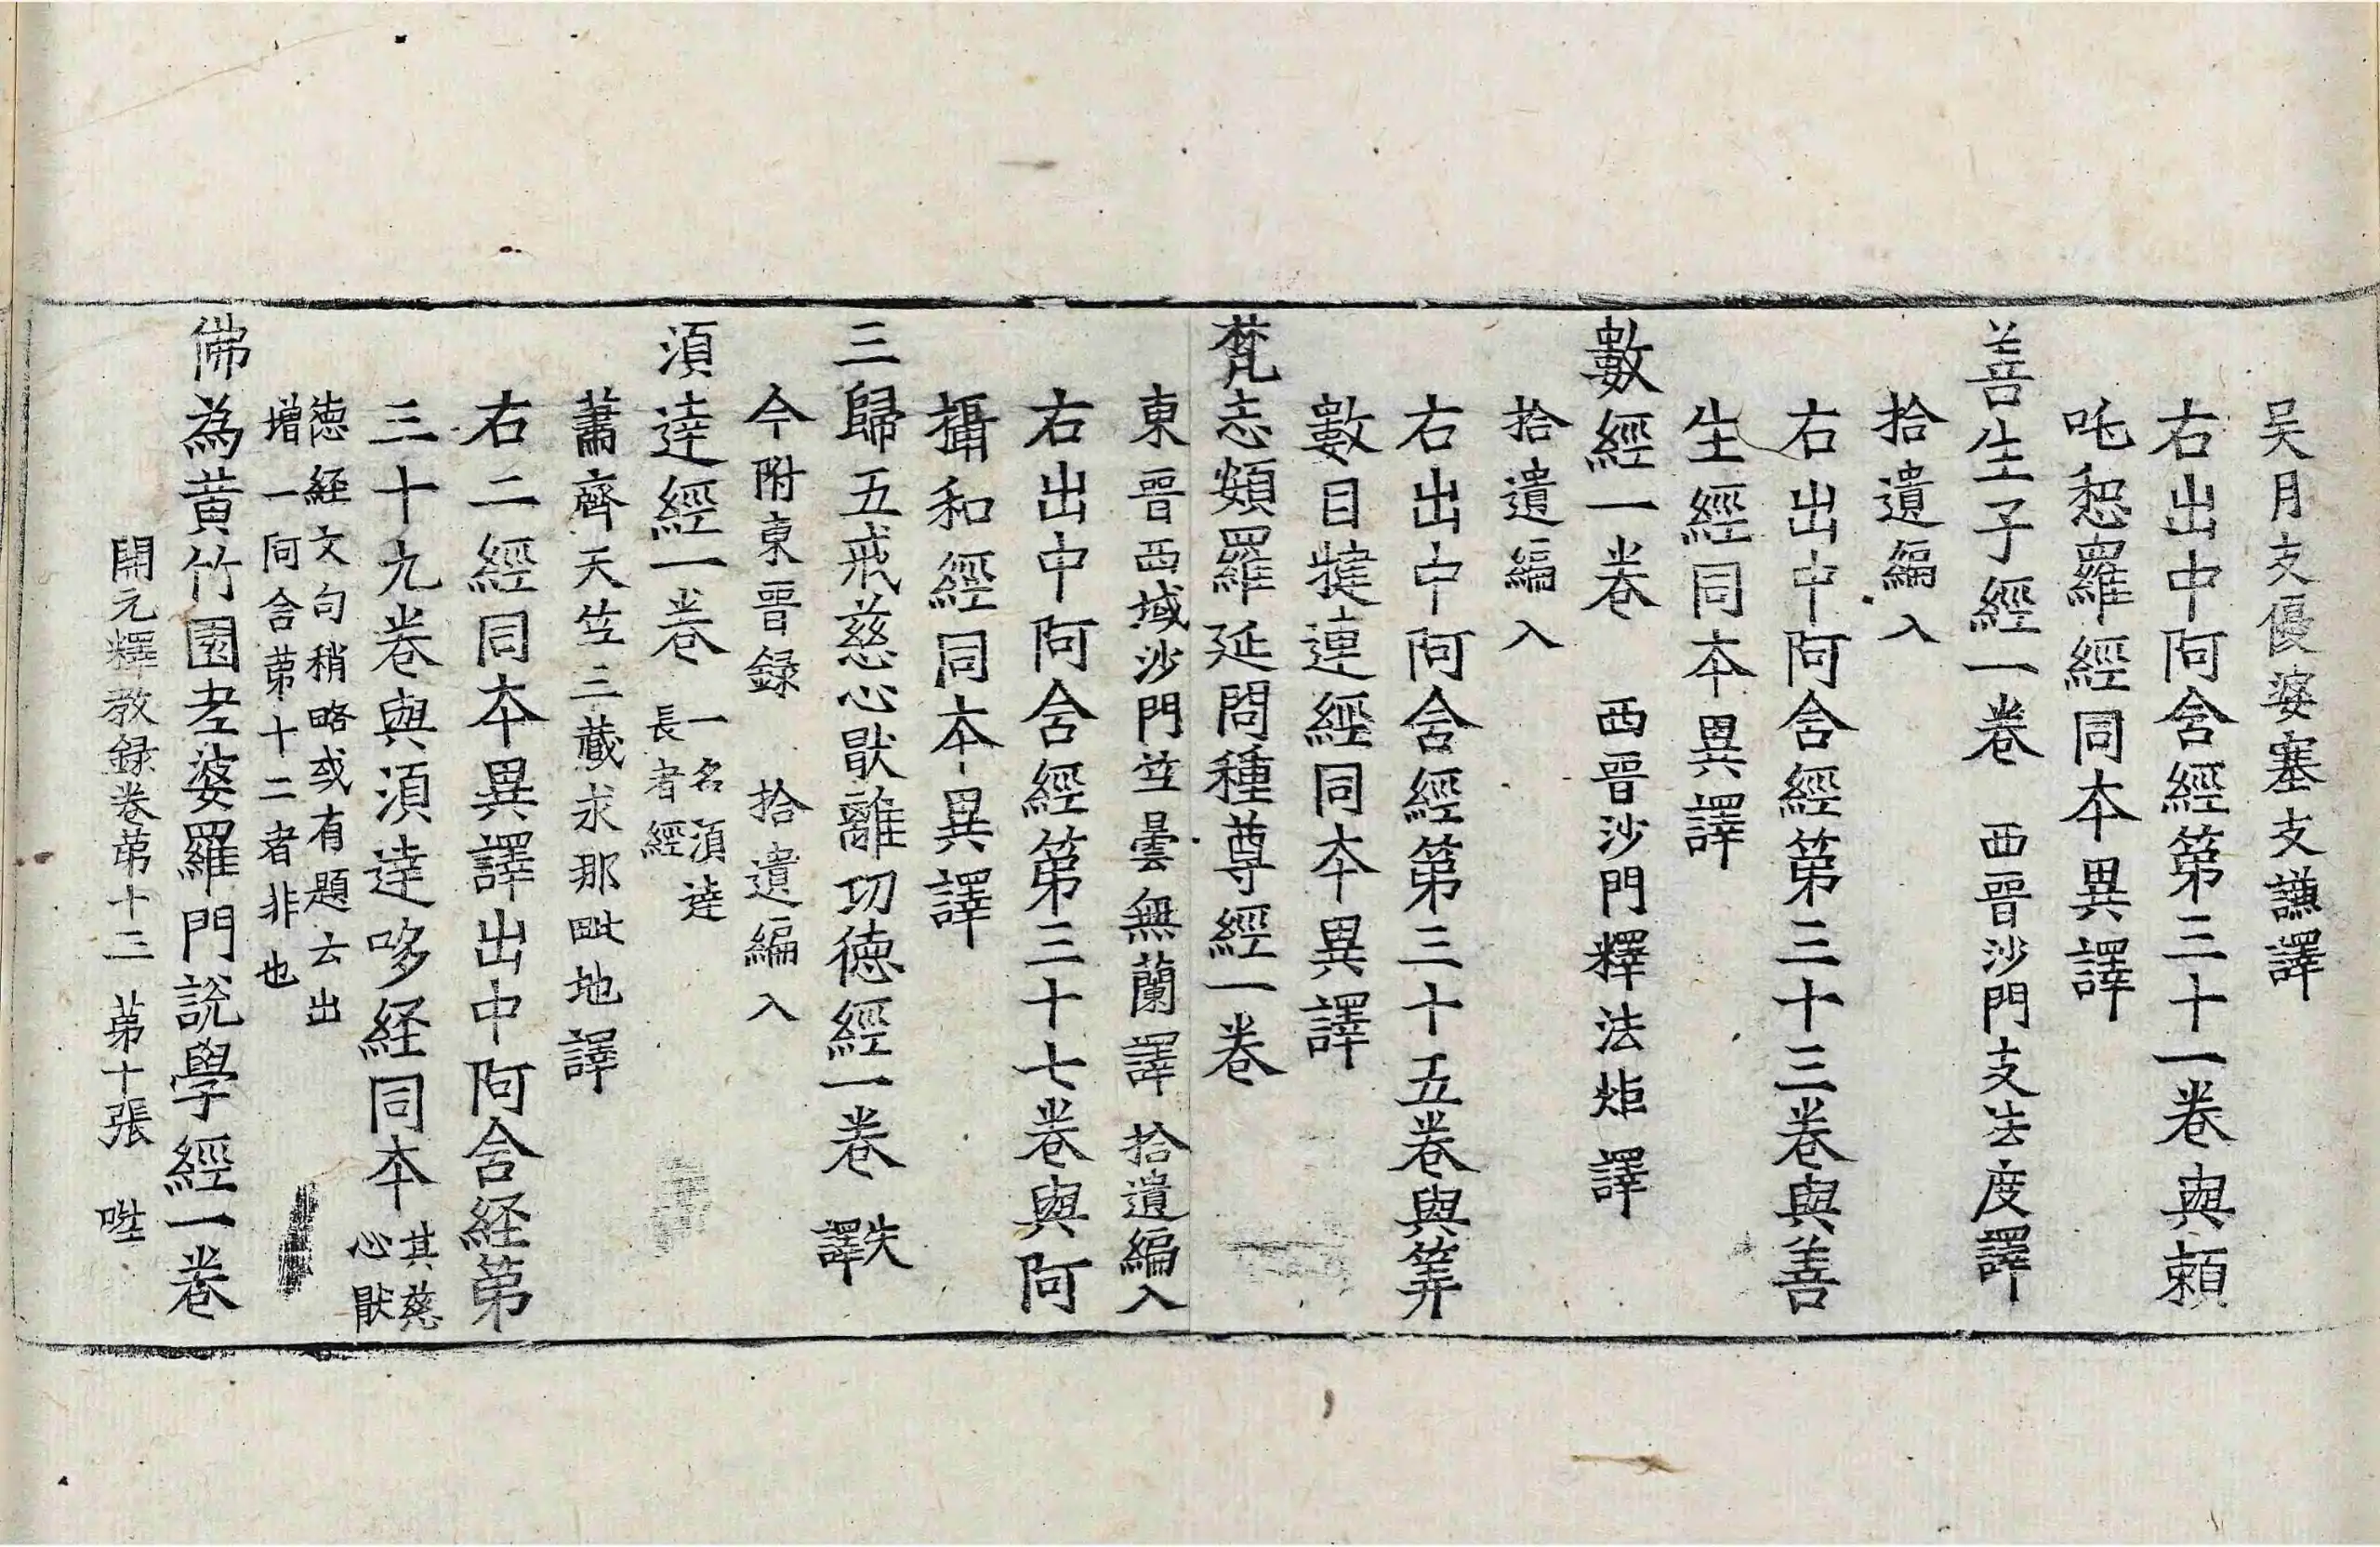 吴月支優婆塞支謙譯
右出中阿含經第三十一卷與頼
吒惒羅經同本異譯
善生子經一卷 西晉沙門支法度譯
拾遺編入
右出中阿含經第三十三卷與善
生經同本異譯
數經一卷 西晉沙門釋法炬譯
拾遺編入
右出中阿含經第三十五卷與筭
數目揵連經同本異譯
梵志頞羅延問種尊經一卷
東晉西域沙門竺曇無蘭譯 拾遺編入
右出中阿含經第三十七卷與阿
攝和經同本異譯
三歸五戒慈心猒離功德經一卷 失譯
今附東晉録 拾遺編入
湏達經一卷 一名湏達
長者經
蕭齊天竺三藏求那毗地譯
右二經同本異譯出中阿含経第
三十九卷與湏達哆経同本 其慈
心猒
德經文句稍略或有題云出
増一阿含苐十二者非也
佛為黄竹園老婆羅門說學經一卷
開元釋教録卷苐十三 苐十張 陞